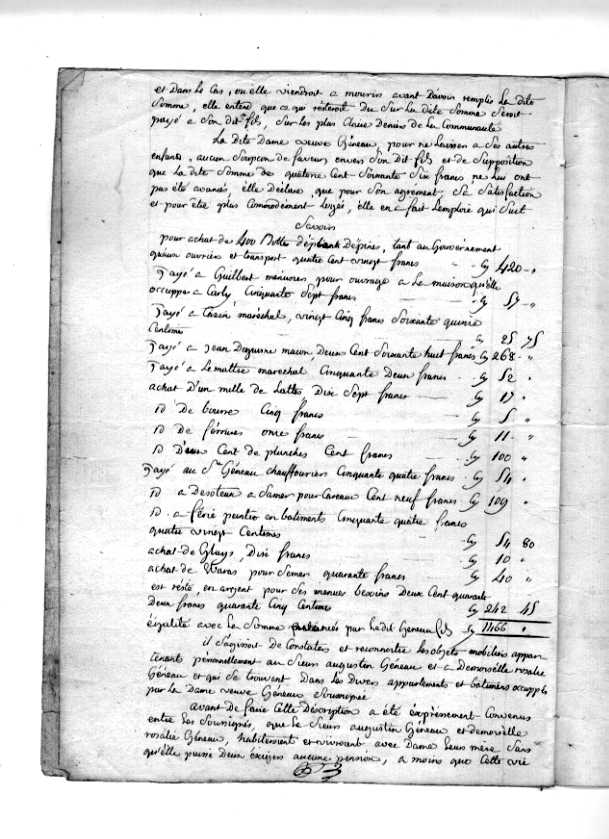 et Dans Le Cas, ou elle viendroit a mourir avant D'avoir remplis La dite
Somme, elle entend que ce qui resteroit du Sur La dite Somme Seroit
payé a Son dit fils, Sur les plus Claire Deniers de La Communauté
La dite Dame veuve Géneau, pour ne Laisser a Ses autres
enfans, aucun Soupçon de faveur envers Son Dit fils et de Supposition
que La dite Somme de quatorze Cent Soixante Six francs ne Lui ont
pas été avancé, elle Déclare, que pour Son agrément, Sa Satisfaction
et pour être plus Commodement Logée, elle en a fait L'emploie qui Suit
Savoir
pour achat de 400 Bottes D'épines, tant au Gouvernement
qu'aux ouvriers et transport quatre Cent vingt francs 420 "
Payé a Guilbert menuisier, pour ouvrage a La maison qu'elle
occuppe a Carly, Cinquante Sept francs 57 "
Payé a Cazin maréchal, vingt Cinq francs Soixante quinze
Centimes 25 75
Payé a Jean maçon Deux Cent Soixante huit francs 268 "
Payé a Lemaitre marechal Cinquante Deux francs 52 "
achat D'un mille de Lattes Dix Sept francs 17 "
id De bourre Cinq francs 5 "
id De onze francs 11 "
id Deux Cent de planches Cent francs 100 "
Payé au Sr Géneau chauffournier Cinquante quatre francs 54 "
id a a Samer pour Carreaux Cent neuf francs 109 "
id a peintre en batiments Cinquante quatre francs
quatre vingt Centimes 54 80
achat de Gluys, Dix francs 10 "
achat de Waras pour Semer quarante francs 40 "
est resté en argent pour Ses menues besoins Deux Cent quarante
Deux francs quarante Cinq Centimes 242 45
égalité avec La Somme par Ledit Géneau fils 1466 "
il S'agissoit De Constater et reconnoitre Les objets mobiliers appar-
tenants personnellement au Sieur augustin Géneau et a Demoiselle rosalie
Géneau et qui Se trouvent Dans Les Divers appartements et batiments occuppés
par La Dame veuve Géneau Soussignée
avant De faire Cette Description a été expressement Convenus
entre Les Soussignés, que Le Sieur augustin Géneau et demoiselle
rosalie Géneau, habiteroient et vivroient avec Dame Leur mère Sans
qu'elle puisse D'eux exiger aucune pension, a moins que Cette